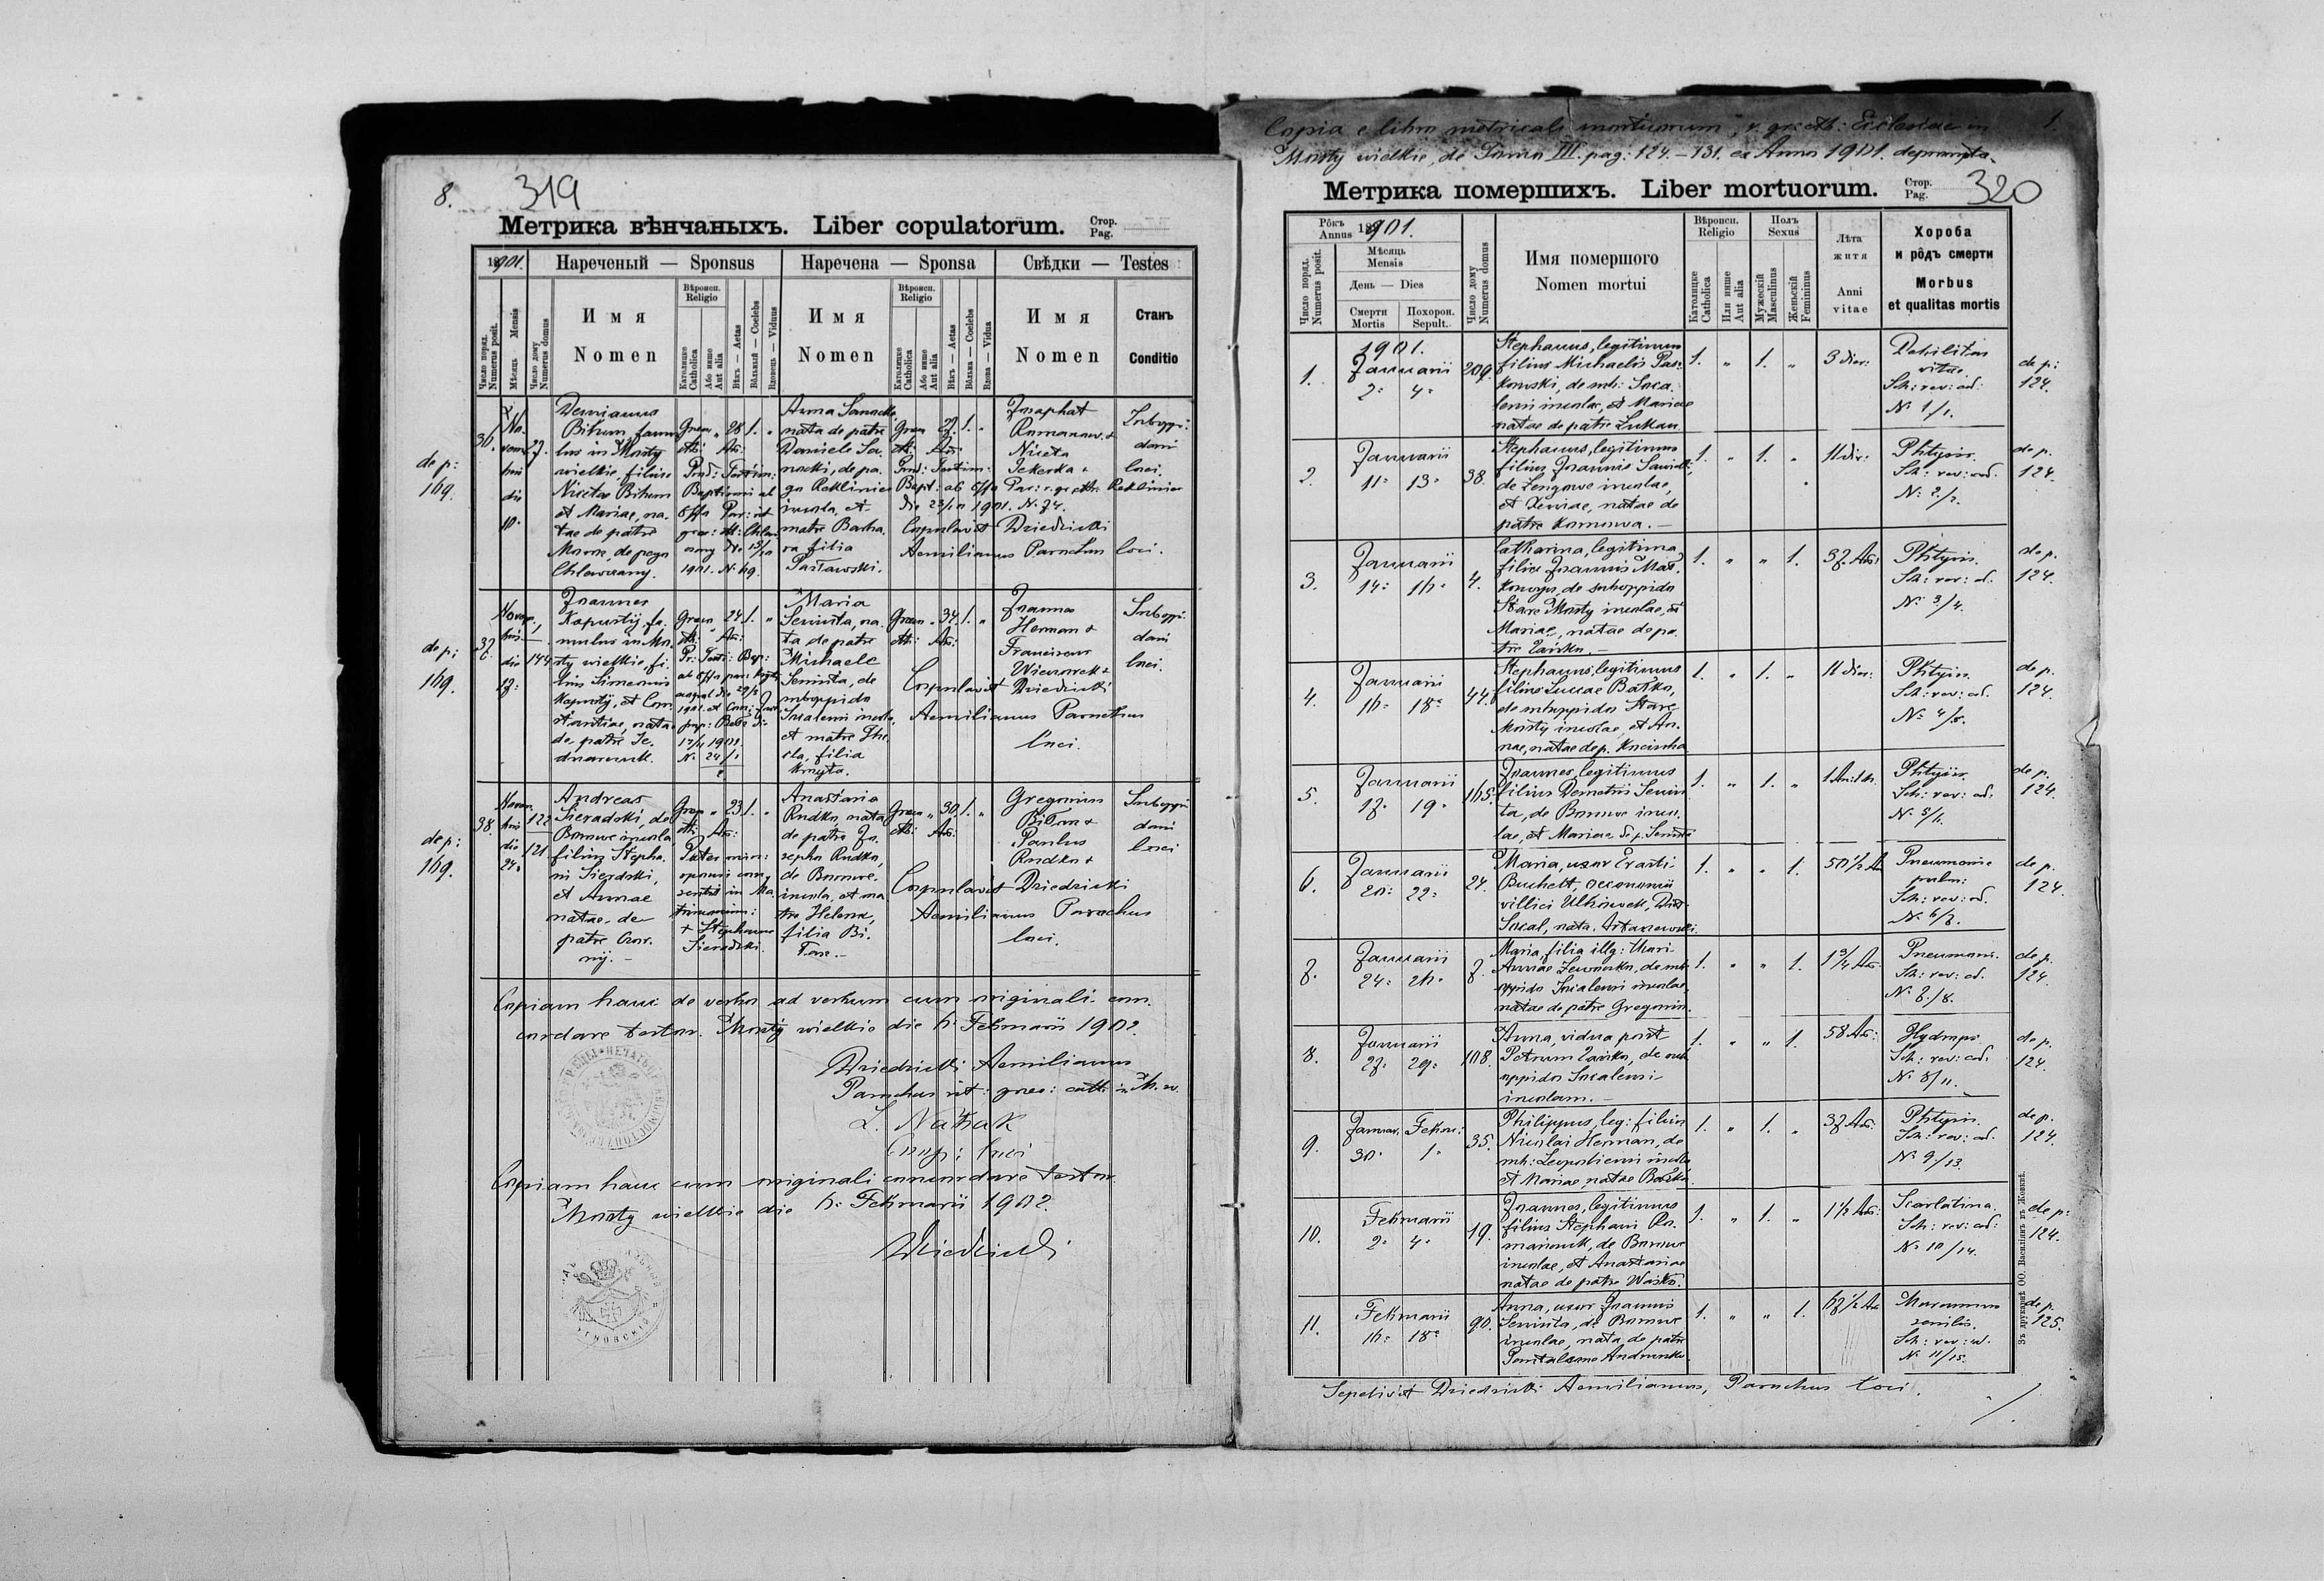 8. 319
Метрика вѣнчаныхъ. Liber copulatorum. Стор. Pag.
1901. Нареченый — Sponsus Наречена — Sponsa Свѣдки — Testes
Число поряд. Numerus posit.
Мѣсяць Mensis
Число дому Numerus domus
Имя Nomen
Вѣроисп. Religio
Католицке Catholica
Або инше Aut alia
Вѣкъ — Aetas
Вѣльный — Coelebs
Вдовець — Viduus
Имя Nomen
Вѣроисп. Religio
Католицке Catholica
Або инше Aut alia
Вѣкъ — Aetas
Вѣльна — Coelebs
Вдова — Vidua
Имя Nomen
Станъ Conditio
de p: 169.
36.
No
vem
bris
die
10.
27.
Demianus
Bihun, famu
lus in Mosty
wielkie, filius
Nicetae Bihun
et Mariae, na.
tae de patre
Moroz, de pago
Chlewczany.
Graeco „ 28 1. „
cth: An:
1901. N. 69.
Anna Sanocka,
nata de patre
Daniele Sa
nocki, de pa.
go Reklinice
incola, et
matre Barba.
ra filia
Parlawski.
Graeco 27. 1. „
cth: An:
Die 23/10 1901. N. 74.
Josaphat
Romanow. &
Niceta
Jekerka
Suboppi.
dani
loci.
Reklinice
Copulavit Dziedzicki
Aemilianus Parochus loci.
de p: 169.
37.
Novem
bris
die
17.
144
Joannes
Kapustij, fa.
mulus in Mo.
sty wielkie, fi.
lius Simeonis
Kapustij, et Con
stantiae, nata
de patre Je.
dnarczuk.
Graeco „ 24 1. „
cth: An:
17/11 1901.
N. 24/1
Maria
Semuta, na.
ta de patre
Michaele
Semuta, de
suboppido
Socalensi incola,
et matre The
cla, filia
Knyta.
Graeco „ 34. 1. „
cth: An:
Joannes
Herman &
Franciscus
Wieczorek
Suboppi.
dani
loci.
Copulavit Dziedzicki
Aemilianus Parochus
loci.
de p: 169.
38.
Novem
bris
die
24.
122
121
Andreas
Sieradzki, de
Borowe incola,
filius Stepha.
ni Sieradzki,
et Annae
natae de
patre Czor.
nij. —
Graeco „ 23 1. „
cth: An:
Pater min:
sponsi con
sentit in Ma
trimonium:
+ Stephanus
Sieradzki.
Anastasia
Rudko, nata
de patre Jo.
sepho Rudko,
de Borowe
incola, et ma
tre Helena,
filia Bi.
Tan. —
Graeco „ 30. 1. „
cth: An:
Gregorius
Bitan &
Paulus
Rudko &
Suboppi
dani
loci
Copulavit Dziedzicki
Aemilianus Parochus
loci.
Copiam hanc de verbo ad verbum cum originali con.
cordare testor. Mosty wielkie die 6. Februarii 1902.
Dziedzicki Aemilianus
Parochus rit: graec: cath: in M. w.
Coop: loci
Copiam hanc cum originali concordare testor.
Mosty wielkie die 6. Februarii 1902.
Dziedzicki
Copia e libro metricali „mortuorum“, r. gr: cth: Ecclesiae in 1.
Mosty wielkie, de Tomo III. pag: 124. – 131. ex Anno 1901. deprompta.
Метрика помершихъ. Liber mortuorum. Стор. Pag. 320
Рôкъ Annus 1901.
Число поряд. Numerus posit.
Мѣсяць Mensis
День — Dies
Смерти Mortis
Похорон. Sepult.
Число дому Numerus domus
Имя помершого Nomen mortui
Вѣроисп. Religio
Католицке Catholica
Или инше Aut alia
Полъ Sexus
Мужескій Masculinus
Женьскій Femininus
Лѣта житя Anni vitae
Хороба и рôдъ смерти Morbus et qualitas mortis
1901.
1.
Januarii
2. 4.
209.
Stephanus, legitimus
filius Michaelis Pas.
kowski, de sub: Soca
lensi incolae, et Mariae
natae de patre Lukan
1. „ 1. „
3 dier:
Debilitas
vitae
Sch: rev: ad:
N. 1/1.
de p: 124.
2.
Januarii
11. 13.
38.
Stephanus, legitimus
filius Joannis Sawicki,
de Zengowe incolae,
et Xeniae, natae de
patre Komowa. —
1. „ 1. „
11 dier:
Phtysis.
Sch: rev: ad:
N: 2/2.
de p. 124.
3.
Januarii
14. 16.
4.
Catharina, legitima
filia Joannis Mas.
kowycz, de suboppido
Stare Mosty incolae, et
Mariae, natae de pa.
tre Zaisko. —
1. „ „ 1.
37. An:
Phtysis.
Sch: rev: ad.
N. 3/4.
de p. 124.
4.
Januarii
16. 18.
44.
Stephanus, legitimus
filius Lucae Batko,
de suboppido Stare
Mosty incolae, et An.
nae, natae de p. Kncischa
1. „ 1. „
11 dier:
Phtysis.
Sch: rev: ad.
N. 4/5.
de p. 124.
5.
Januarii
17. 19.
165.
Joannes, legitimus
filius Demetrii Semu
ta, de Borowe inco.
lae, et Mariae, de p. Semuta
1. „ 1. „
Phtysis.
Sch: rev: ad:
N. 5/6.
de p. 124.
6.
Januarii
20. 22.
24.
Maria, uxor Erasti
Buchelt, oeconomi
villici Ulhowek, Distr
Socal, nata Artaszewski.
1. „ „ 1.
50 1/2 An
Pneumonia
pulm:
Sch: rev: ad.
N. 6/7.
de p. 124.
7.
Januarii
24. 26.
7.
Maria, filia illg: thori
Annae Zewnosko, de sub
oppido Socalensi incolae,
natae de patre Gregorio.
1. „ „ 1.
1 3/4 An:
Pneumon.
Sch: rev: ad.
N. 7./8.
de p. 124.
8.
Januarii
27. 29.
108.
Anna, vidua post
Petrum Zaisko, de sub
oppido Socalensi
incolam. —
1. „ „ 1.
58 An:
Hydrops.
Sch: rev: ad:
N. 8/11.
de p. 124.
9.
Januar. Febru:
30. 1.
35.
Philippus, leg: filius
Nicolai Herman, de
sub: Leopoliensi incolae
et Mariae, natae Batko.
1. „ 1. „
37 An:
Phtysis.
Sch: rev: ad.
N. 9./13.
de p. 124.
10.
Februarii
2. 4.
19.
Joannes, legitimus
filius Stephani Ro.
manczuk, de Borowe
incolae, et Anastasiae
natae de patre Wasko.
1. „ 1. „
1 1/2 An:
Scarlatina.
Sch: rev: ad:
N. 10/14.
de p: 124.
11.
Februarii
16. 18.
90.
Anna, uxor Joannis
Semuta, de Borowe
incolae, nata de patre
Pantaleone Andrusko.
1. „ „ 1.
67 1/2 An
Marasmus
senilis.
Sch: rev: ad.
N. 11/15.
de p. 125.
Sepelivit Dziedzicki Aemilianus, Parochus loci.
Зъ друкарнѣ ОО. Василіянъ въ Жовквѣ.